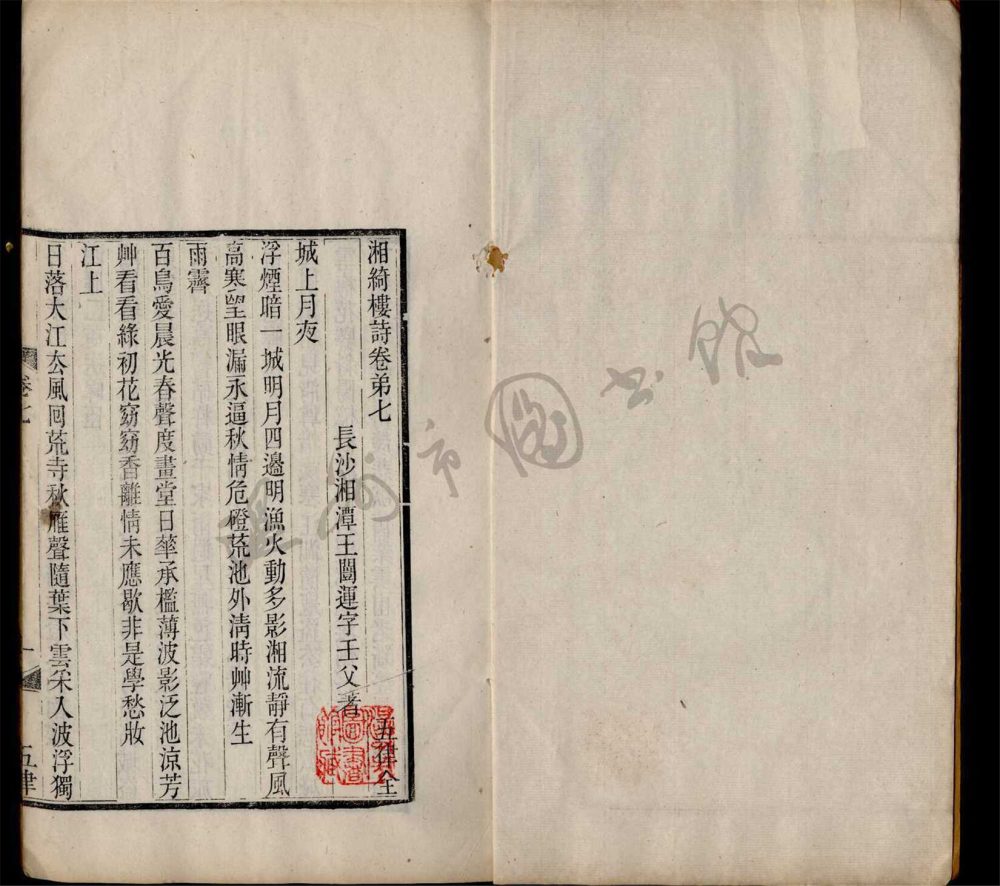 湘綺樓詩卷弟七
五律全
長沙湘潭王闓運字壬父著
城上月夜
浮煙暗一城明月四邊明漁火動多影湘流靜有聲風
高寒望眼漏永逼秋情危磴荒池外淸時艸漸生
雨霽
百鳥愛晨光春聲度畫堂日華承檻薄波影泛池涼芳
艸看看綠初花窈窈香離情未應歇非是學愁妝
江上
日落大江厺風回荒寺秋雁聲隨葉下雲采入波浮獨
卷七
一
五律
市圖書館